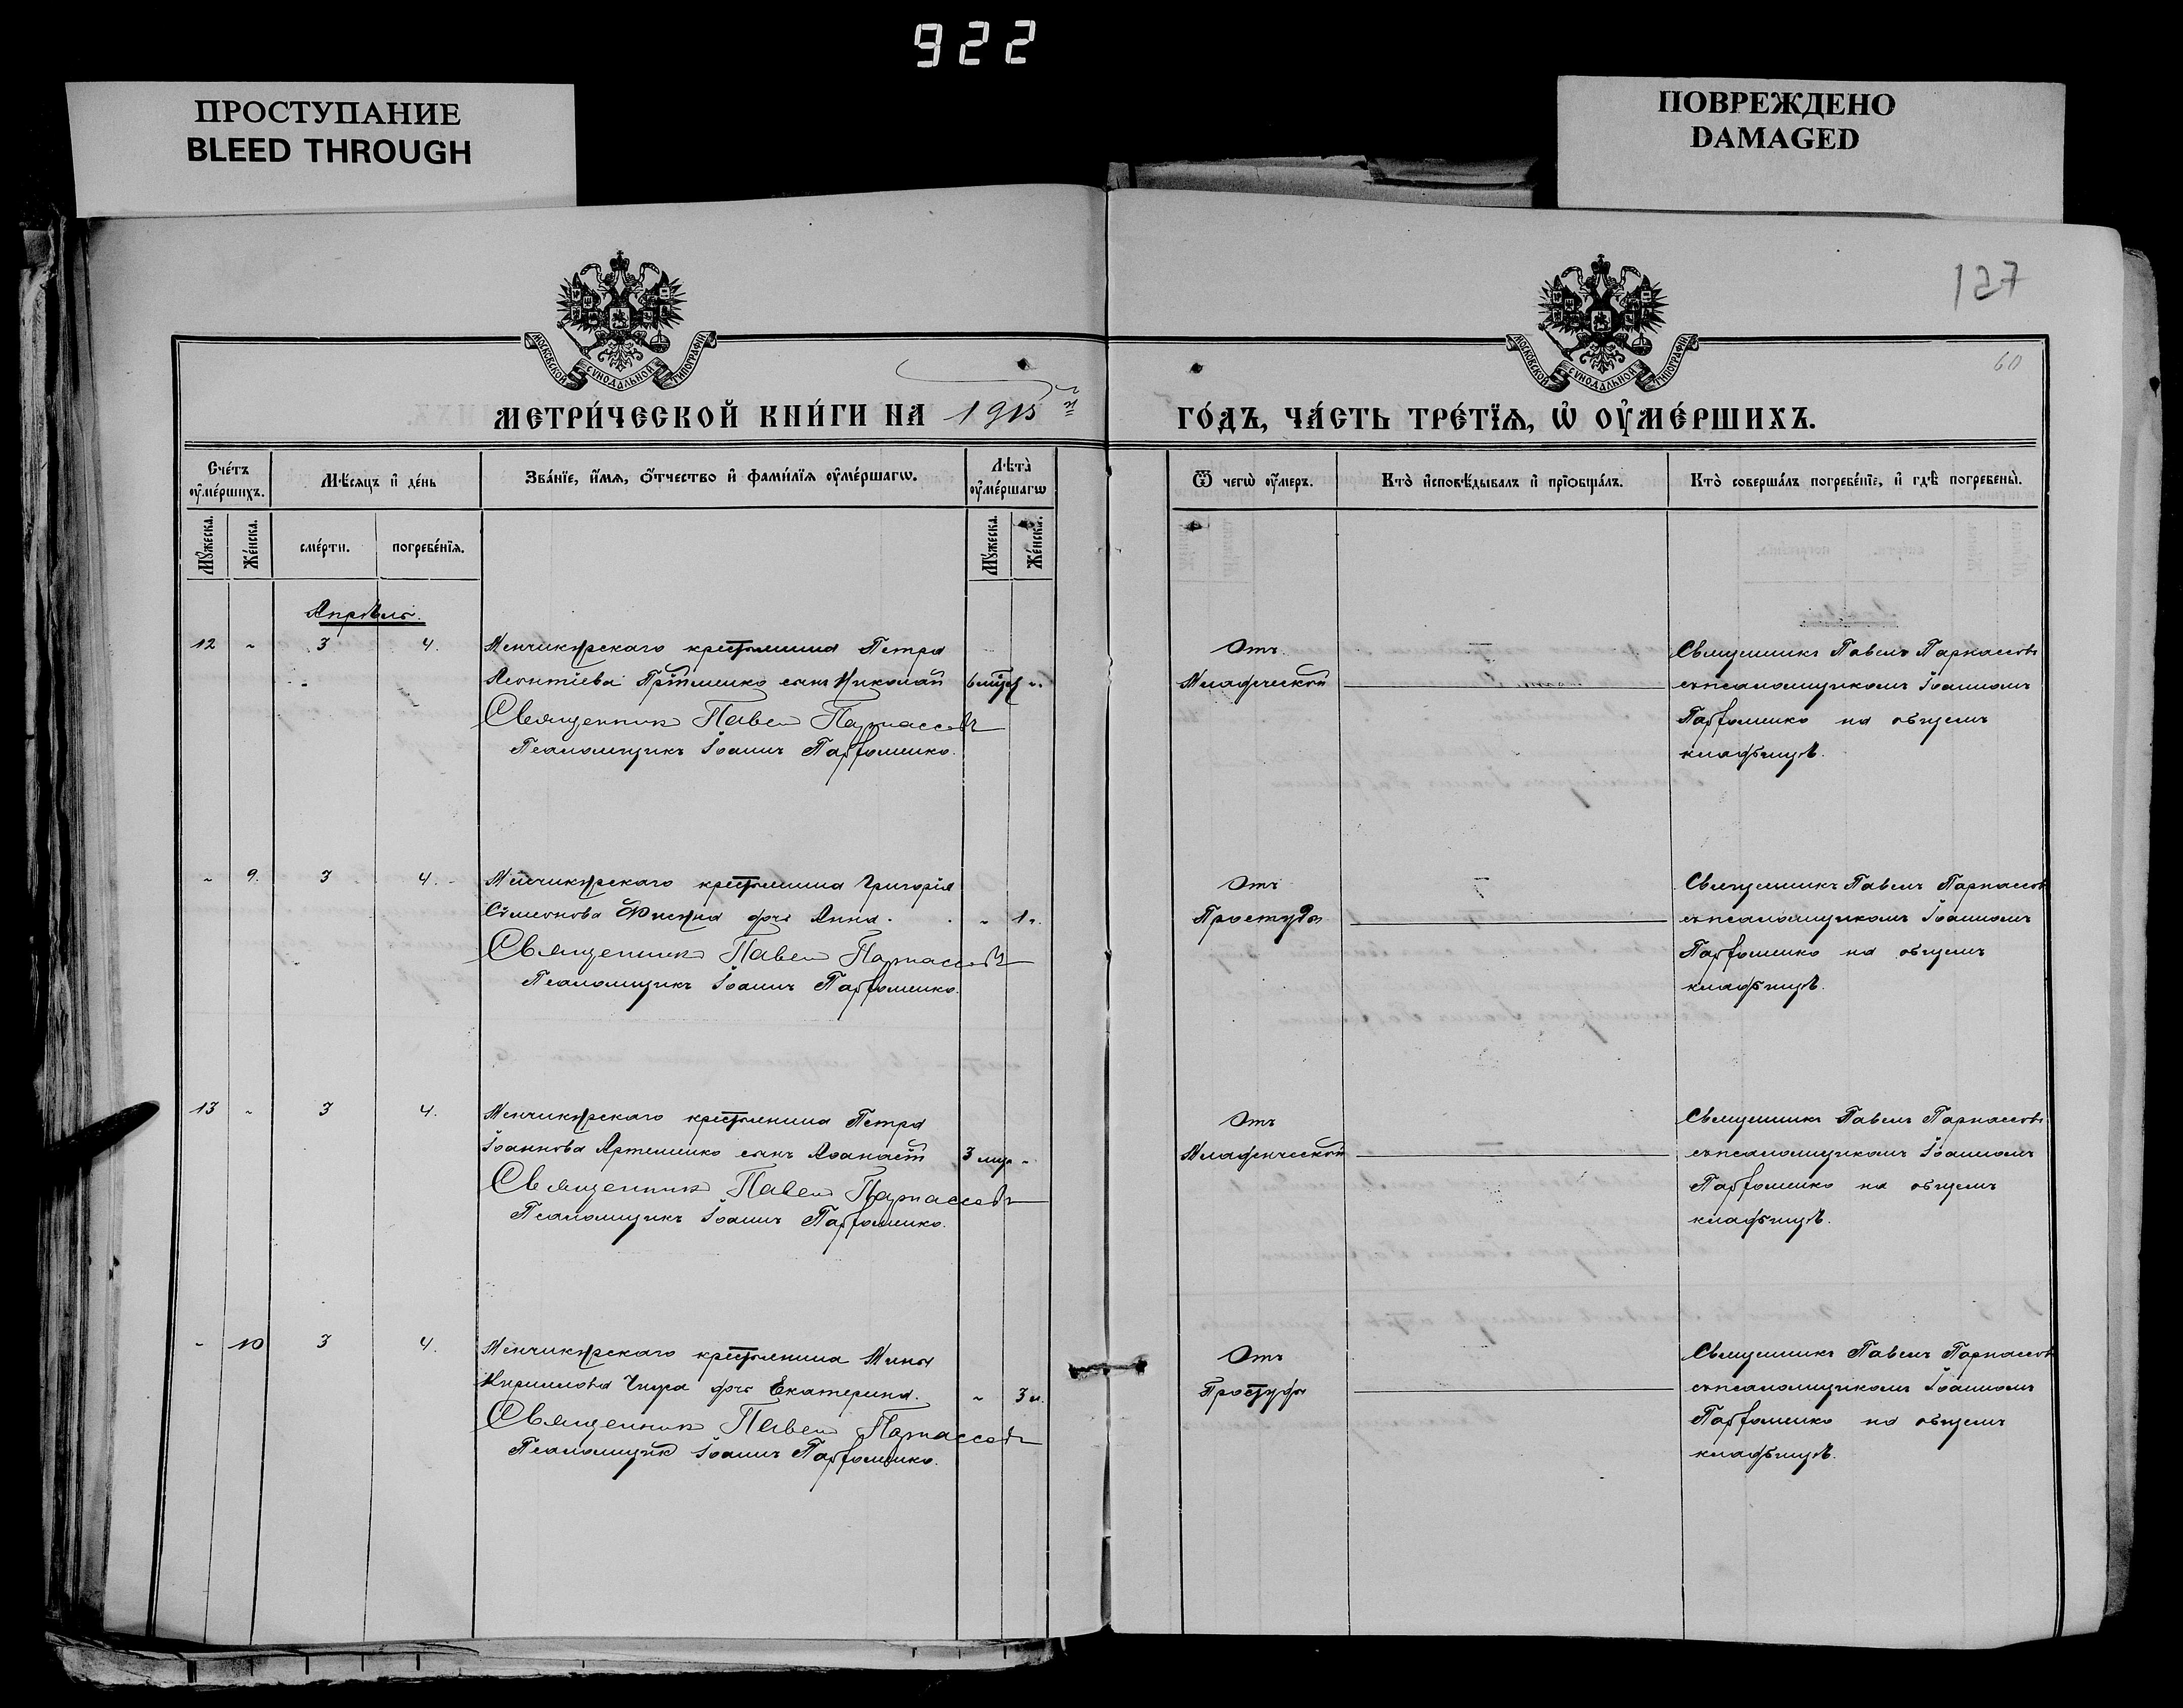 922
ПРОСТУПАНИЕ
BLEED THROUGH
ПОВРЕЖДЕНО
DAMAGED
127
60
МОСКОВСКОЙ СѴНОДАЛЬНОЙ ТИПОГРАФІИ
МОСКОВСКОЙ СѴНОДАЛЬНОЙ ТИПОГРАФІИ
МЕТРИ́ЧЕСКОЙ КНИ́ГИ НА 1915й
ГО́ДЪ, ЧА́СТЬ ТРЕ́ТЇѦ, Ѡ҆ ОУ҆МЕ́РШИХЪ.
Сче́тъ оу҆ме́ршихъ.
Мѣ́сяцъ и҆ де́нь
Зва́нїе, и҆́мѧ, ѻ҆́тчество и҆ фами́лїѧ оу҆ме́ршагѡ.
Лѣ́та оу҆ме́ршагѡ
Ѿ чегѡ̀ оу҆́меръ.
Кто̀ и҆сповѣ́дывалъ и҆ прїѡбща́лъ.
Кто̀ соверша́лъ погребе́нїе, и҆ гдѣ̀ погребены̀.
Мꙋ́жеска.
Же́нска.
сме́рти.
погребе́нїѧ.
Мꙋ́жеска.
Же́нска.
Апрѣль.
12 " 3 4. Менчикурскаго крестьянина Петра
Леонтіева сынъ Николай 6 "
Священникъ Павелъ Парнассовъ
Псаломщикъ Іоаннъ Парфоменко.
Отъ
Младенческой
Священникъ Павелъ Парнассовъ
съ псаломщикомъ Іоанномъ
Парфоменко на общемъ
кладбищѣ.
" 9. 3 4. Менчикурскаго крестьянина Григорія
Симеонова дочь Анна. " 1 г.
Священникъ Павелъ Парнассовъ
Псаломщикъ Іоаннъ Парфоменко.
Отъ
Простуды
Священникъ Павелъ Парнассовъ
съ псаломщикомъ Іоанномъ
Парфоменко на общемъ
кладбищѣ.
13 " 3 4. Менчикурскаго крестьянина Петра
Іоаннова Артеменко сынъ Аѳанасій 3 мѣс. "
Священникъ Павелъ Парнассовъ
Псаломщикъ Іоаннъ Парфоменко.
Отъ
Младенческой
Священникъ Павелъ Парнассовъ
съ псаломщикомъ Іоанномъ
Парфоменко на общемъ
кладбищѣ.
" 10 3 4. Менчикурскаго крестьянина Мины
Кириллова дочь Екатерина. " 3
Священникъ Павелъ Парнассовъ
Псаломщикъ Іоаннъ Парфоменко.
Отъ
Простуды
Священникъ Павелъ Парнассовъ
съ псаломщикомъ Іоанномъ
Парфоменко на общемъ
кладбищѣ.